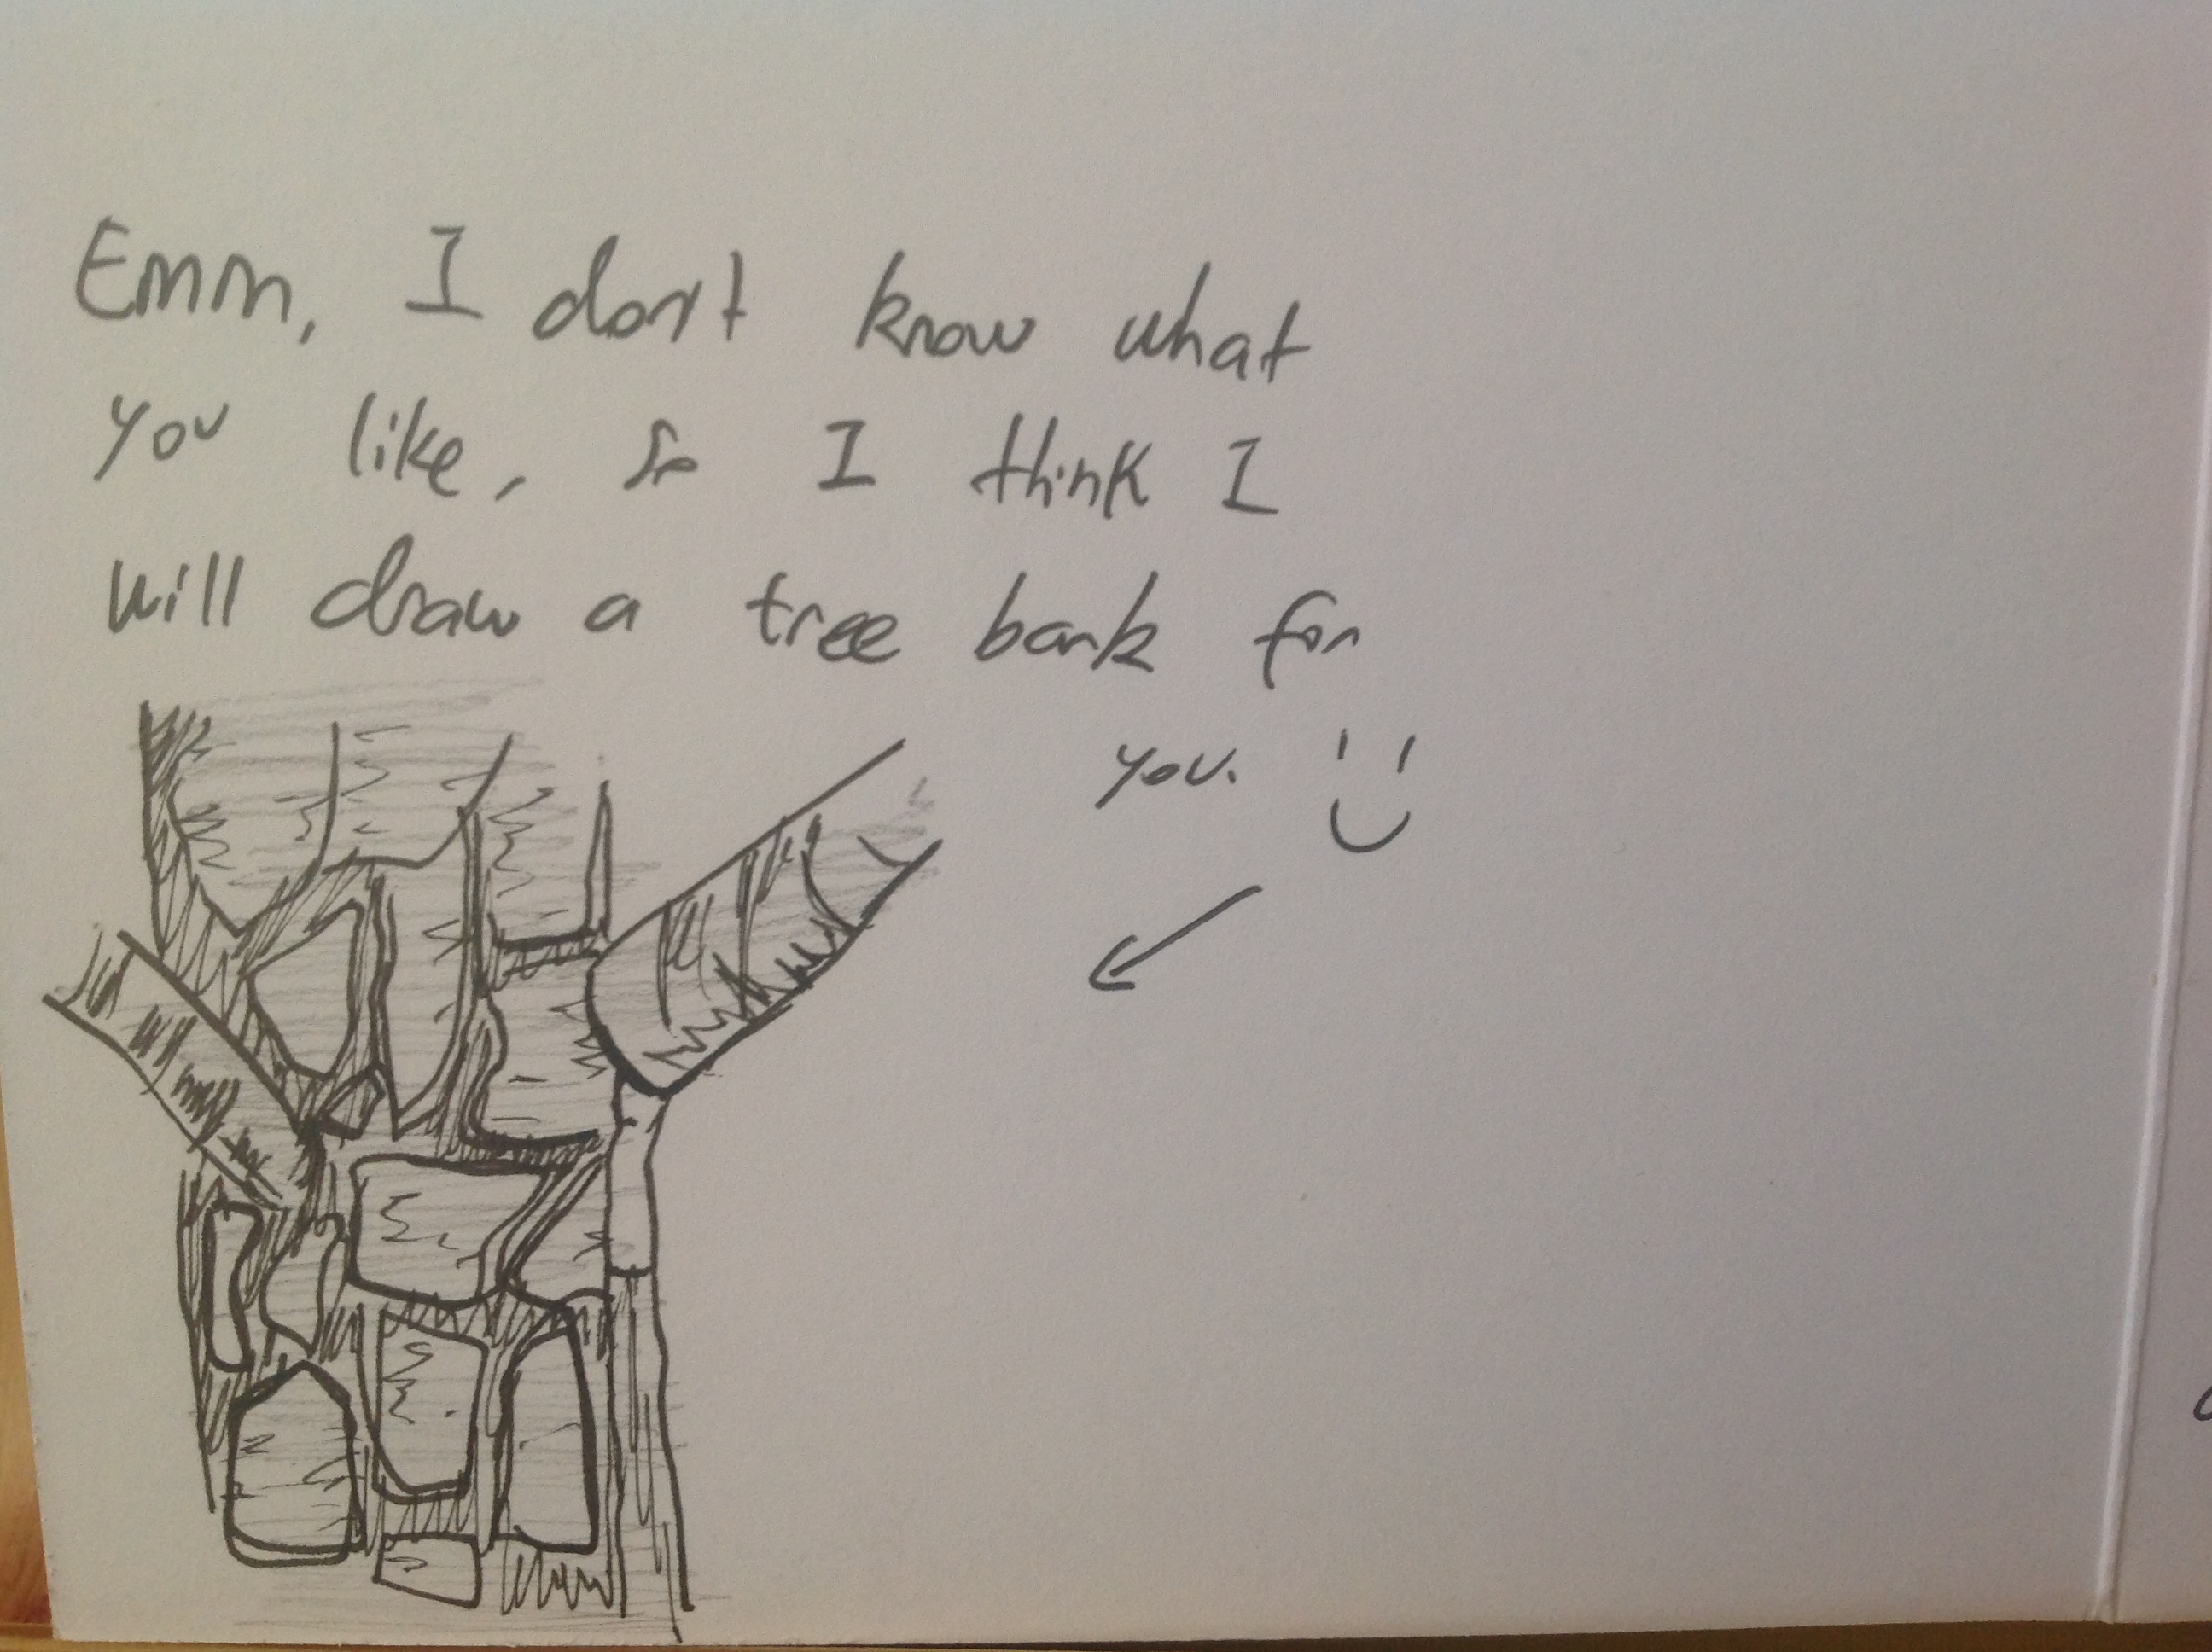 Emm, I don't know what
you like, so I think I
will draw a tree bank for
you.